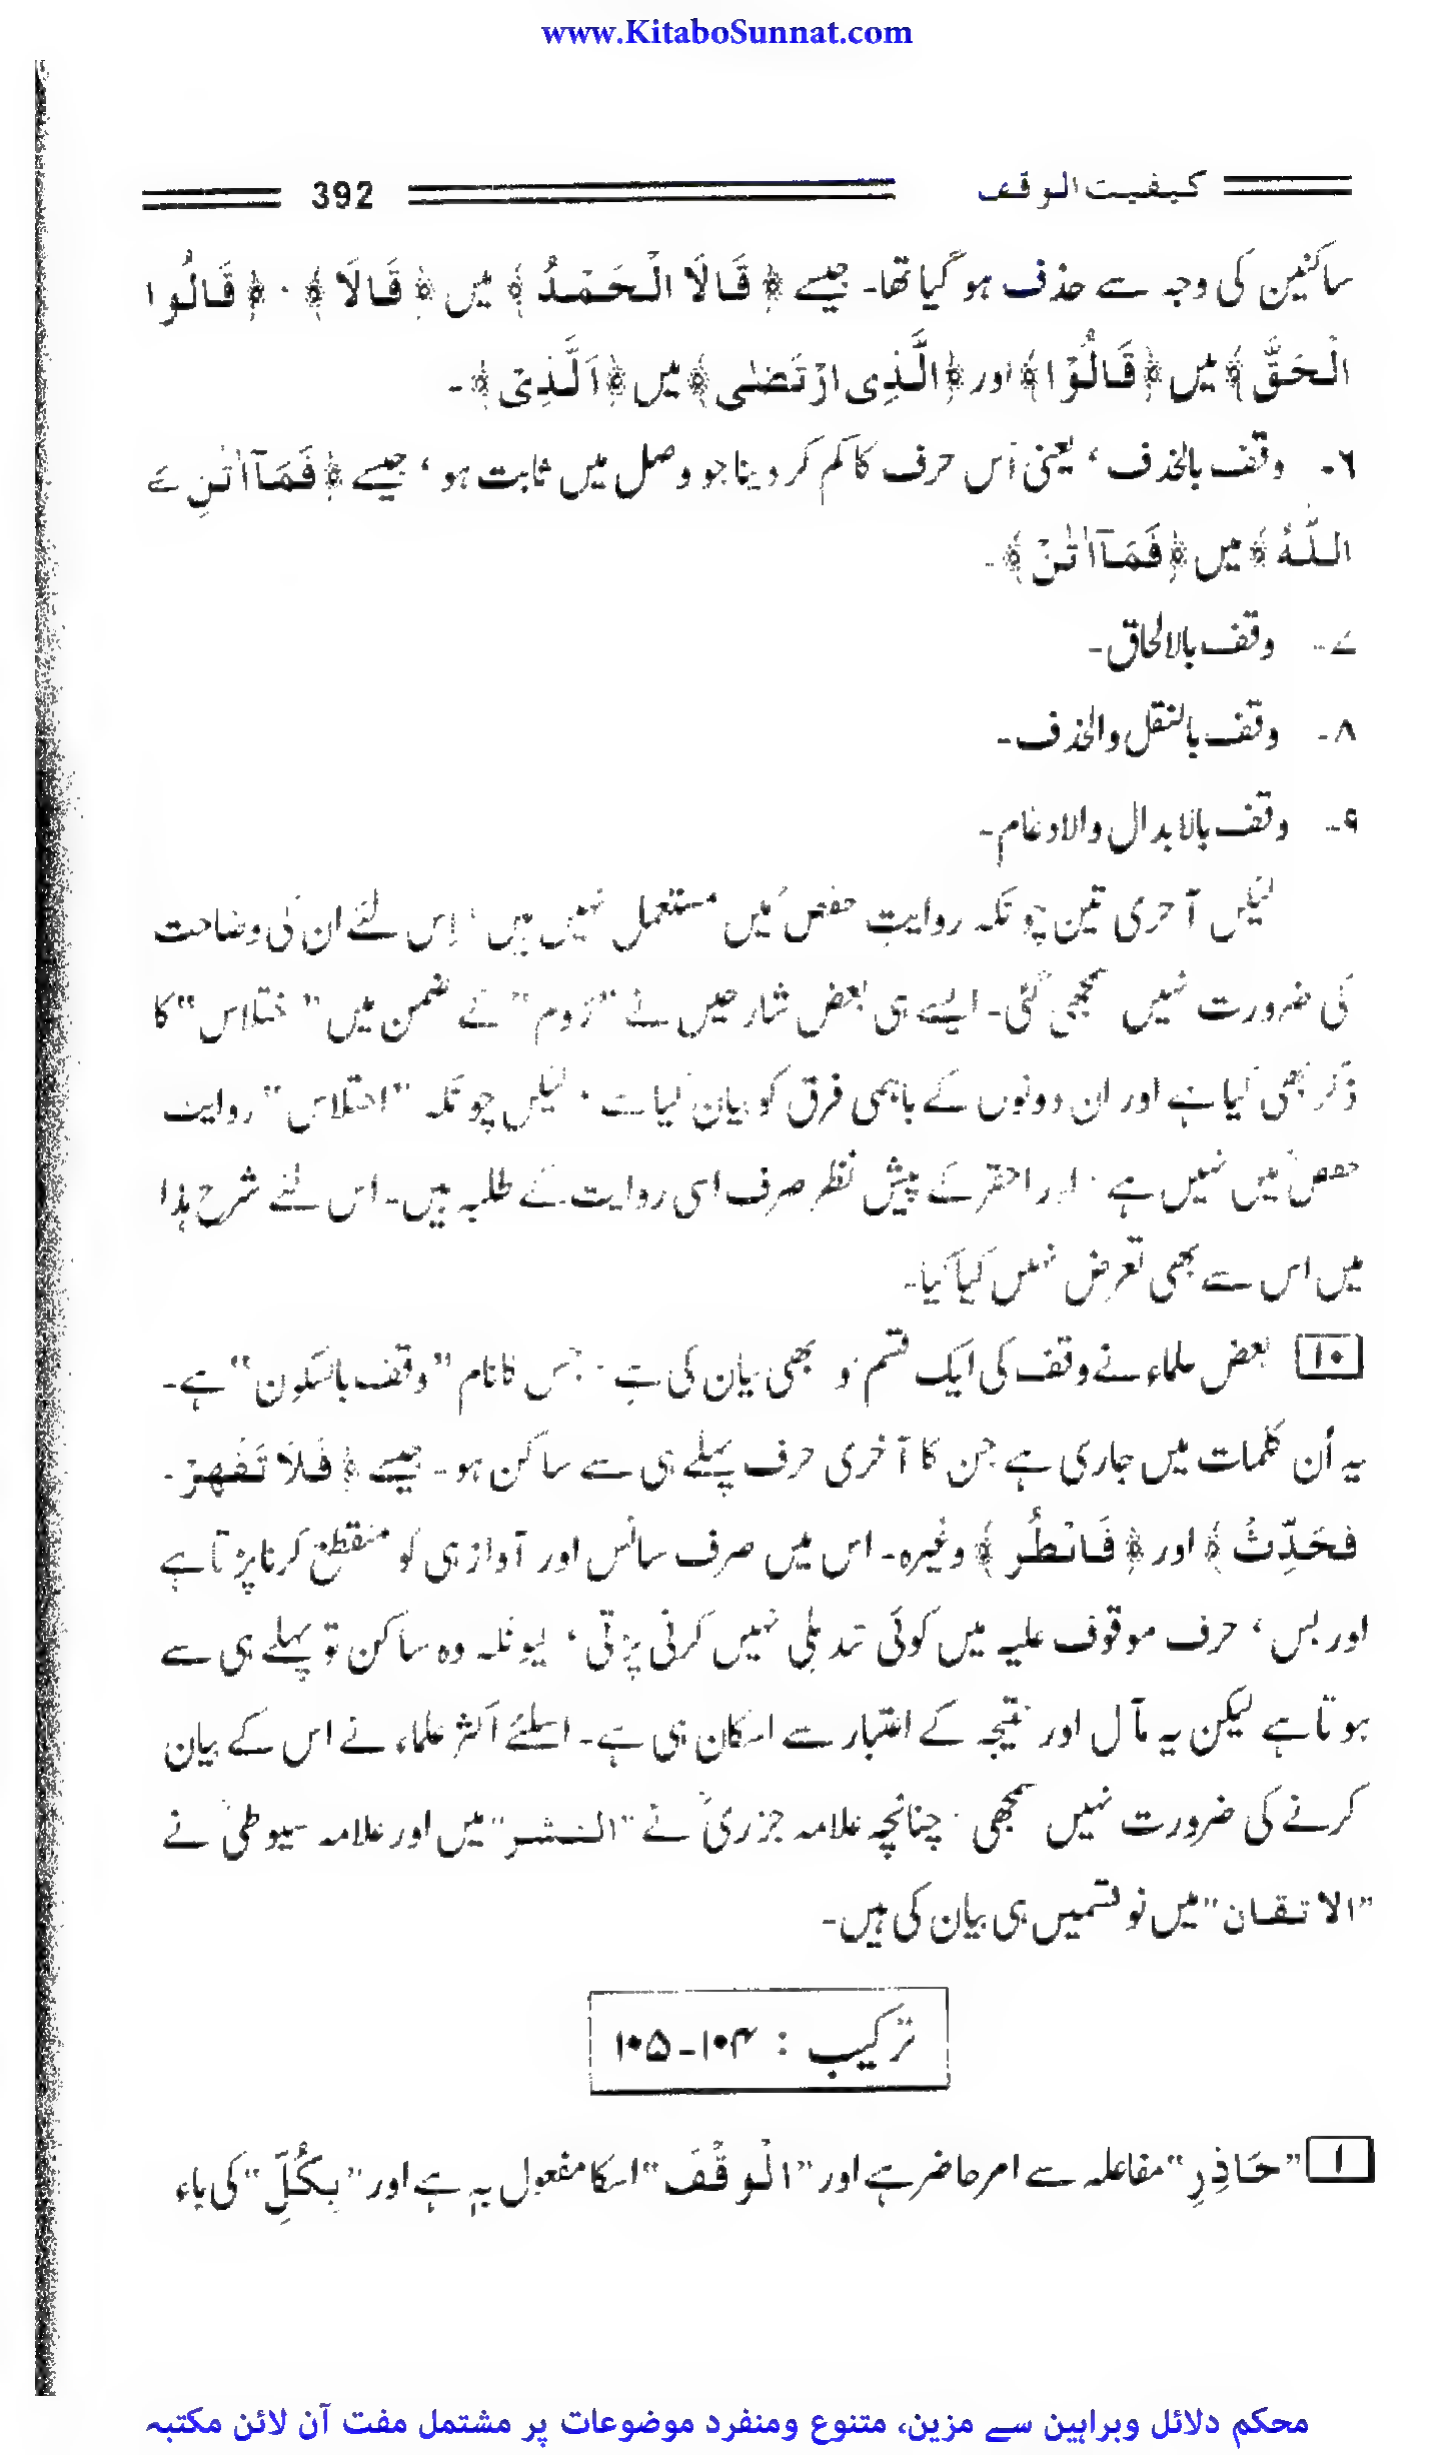 www.KitaboSunnat.com
کیفیت الوقف 392
ساکنین کی وجہ سے حذف ہو گیا تھا۔ جیسے ﴿قَالَا الْحَمْدُ﴾ میں ﴿قَالَا﴾ ، ﴿قَالُوا
الْحَقَّ﴾ میں ﴿قَالُوْا﴾ اور ﴿الَّذِی ارْتَضٰی﴾ میں ﴿اَلَّذِیْ﴾۔
۶۔ وقف بالحذف ، یعنی اُس حرف کا کم کر دینا جو وصل میں ثابت ہو ، جیسے ﴿فَمَآ اٰتٰنِ ےَ
اللّٰہُ﴾ میں ﴿فَمَآ اٰتٰنْ﴾۔
۷۔ وقف بالالحاق۔
۸۔ وقف بالنقل والحذف۔
۹۔ وقف بالابدال والادغام۔
لیکن آخری تین چونکہ روایتِ حفصؒ میں مستعمل نہیں ہیں ، اِس لئے ان کی وضاحت
کی ضرورت نہیں سمجھی گئی۔ ایسے ہی بعض شارحین نے ”رَوم“ کے ضمن میں ”اختلاس“ کا
ذکر بھی کیا ہے اور ان دونوں کے باہمی فرق کو بیان کیا ہے ، لیکن چونکہ ”اختلاس“ روایت
حفصؒ میں نہیں ہے ، اور احقر کے پیش نظر صرف اسی روایت کے طلبہ ہیں۔ اس لئے شرح ہذا
میں اس سے بھی تعرض نہیں کیا گیا۔
۱۰ بعض علماء نے وقف کی ایک قسم اور بھی بیان کی ہے ، جس کا نام ”وقف بالسکون“ ہے۔
یہ اُن کلمات میں جاری ہے جن کا آخری حرف پہلے ہی سے ساکن ہو۔ جیسے ﴿فَلَا تَقْهَرْ۔
فَحَدِّثْ﴾ اور ﴿فَانْظُرْ﴾ وغیرہ۔ اس میں صرف سانس اور آواز ہی کو منقطع کرنا پڑتا ہے
اور بس ، حرف موقوف علیہ میں کوئی تبدیلی نہیں کرنی پڑتی ، کیونکہ وہ ساکن تو پہلے ہی سے
ہوتا ہے لیکن یہ مآل اور نتیجہ کے اعتبار سے اسکان ہی ہے۔ اسلئے اکثر علماء نے اس کے بیان
کرنے کی ضرورت نہیں سمجھی ، چنانچہ علامہ جزریؒ نے ”النشر“ میں اور علامہ سیوطیؒ نے
”الاتقان“ میں نو قسمیں ہی بیان کی ہیں۔
ترکیب : ۱۰۴-۱۰۵
۱ ”حَاذِرِ“ مفاعلہ سے امر حاضر ہے اور ”الْوَقْفَ“ اسکا مفعول بِہٖ ہے اور ”بِکُلِّ“ کی باء
محکم دلائل وبراہین سے مزین، متنوع ومنفرد موضوعات پر مشتمل مفت آن لائن مکتبہ